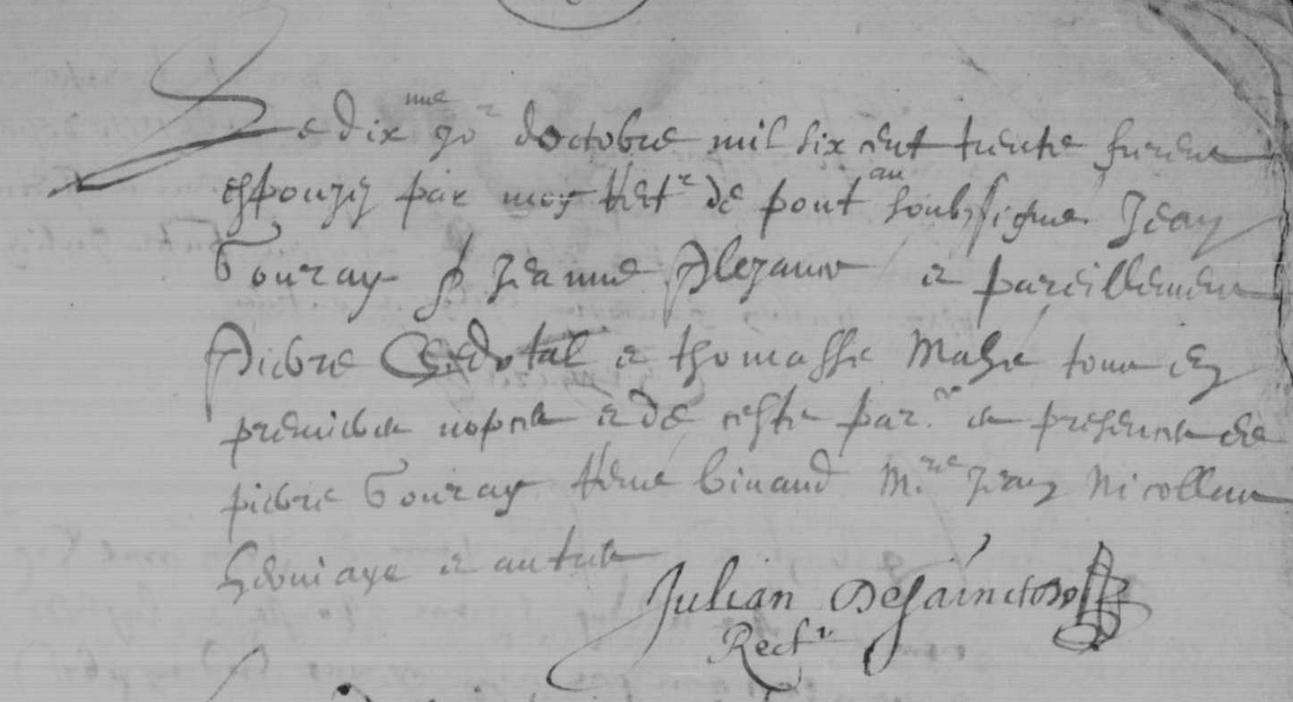 Le dix nme jor doctobre mil six cent trente furent
espouzez par moy Rectr de pont soubzsigne Jean
Gouray & Jeanne et pareillement
Pierre et thomasse Mahé tous en
premieres nopces et de ceste par. en presence de
pierre Gouray René binaud M.re Jean Nicollas
et autres
Julian Desainctdo
Rectr